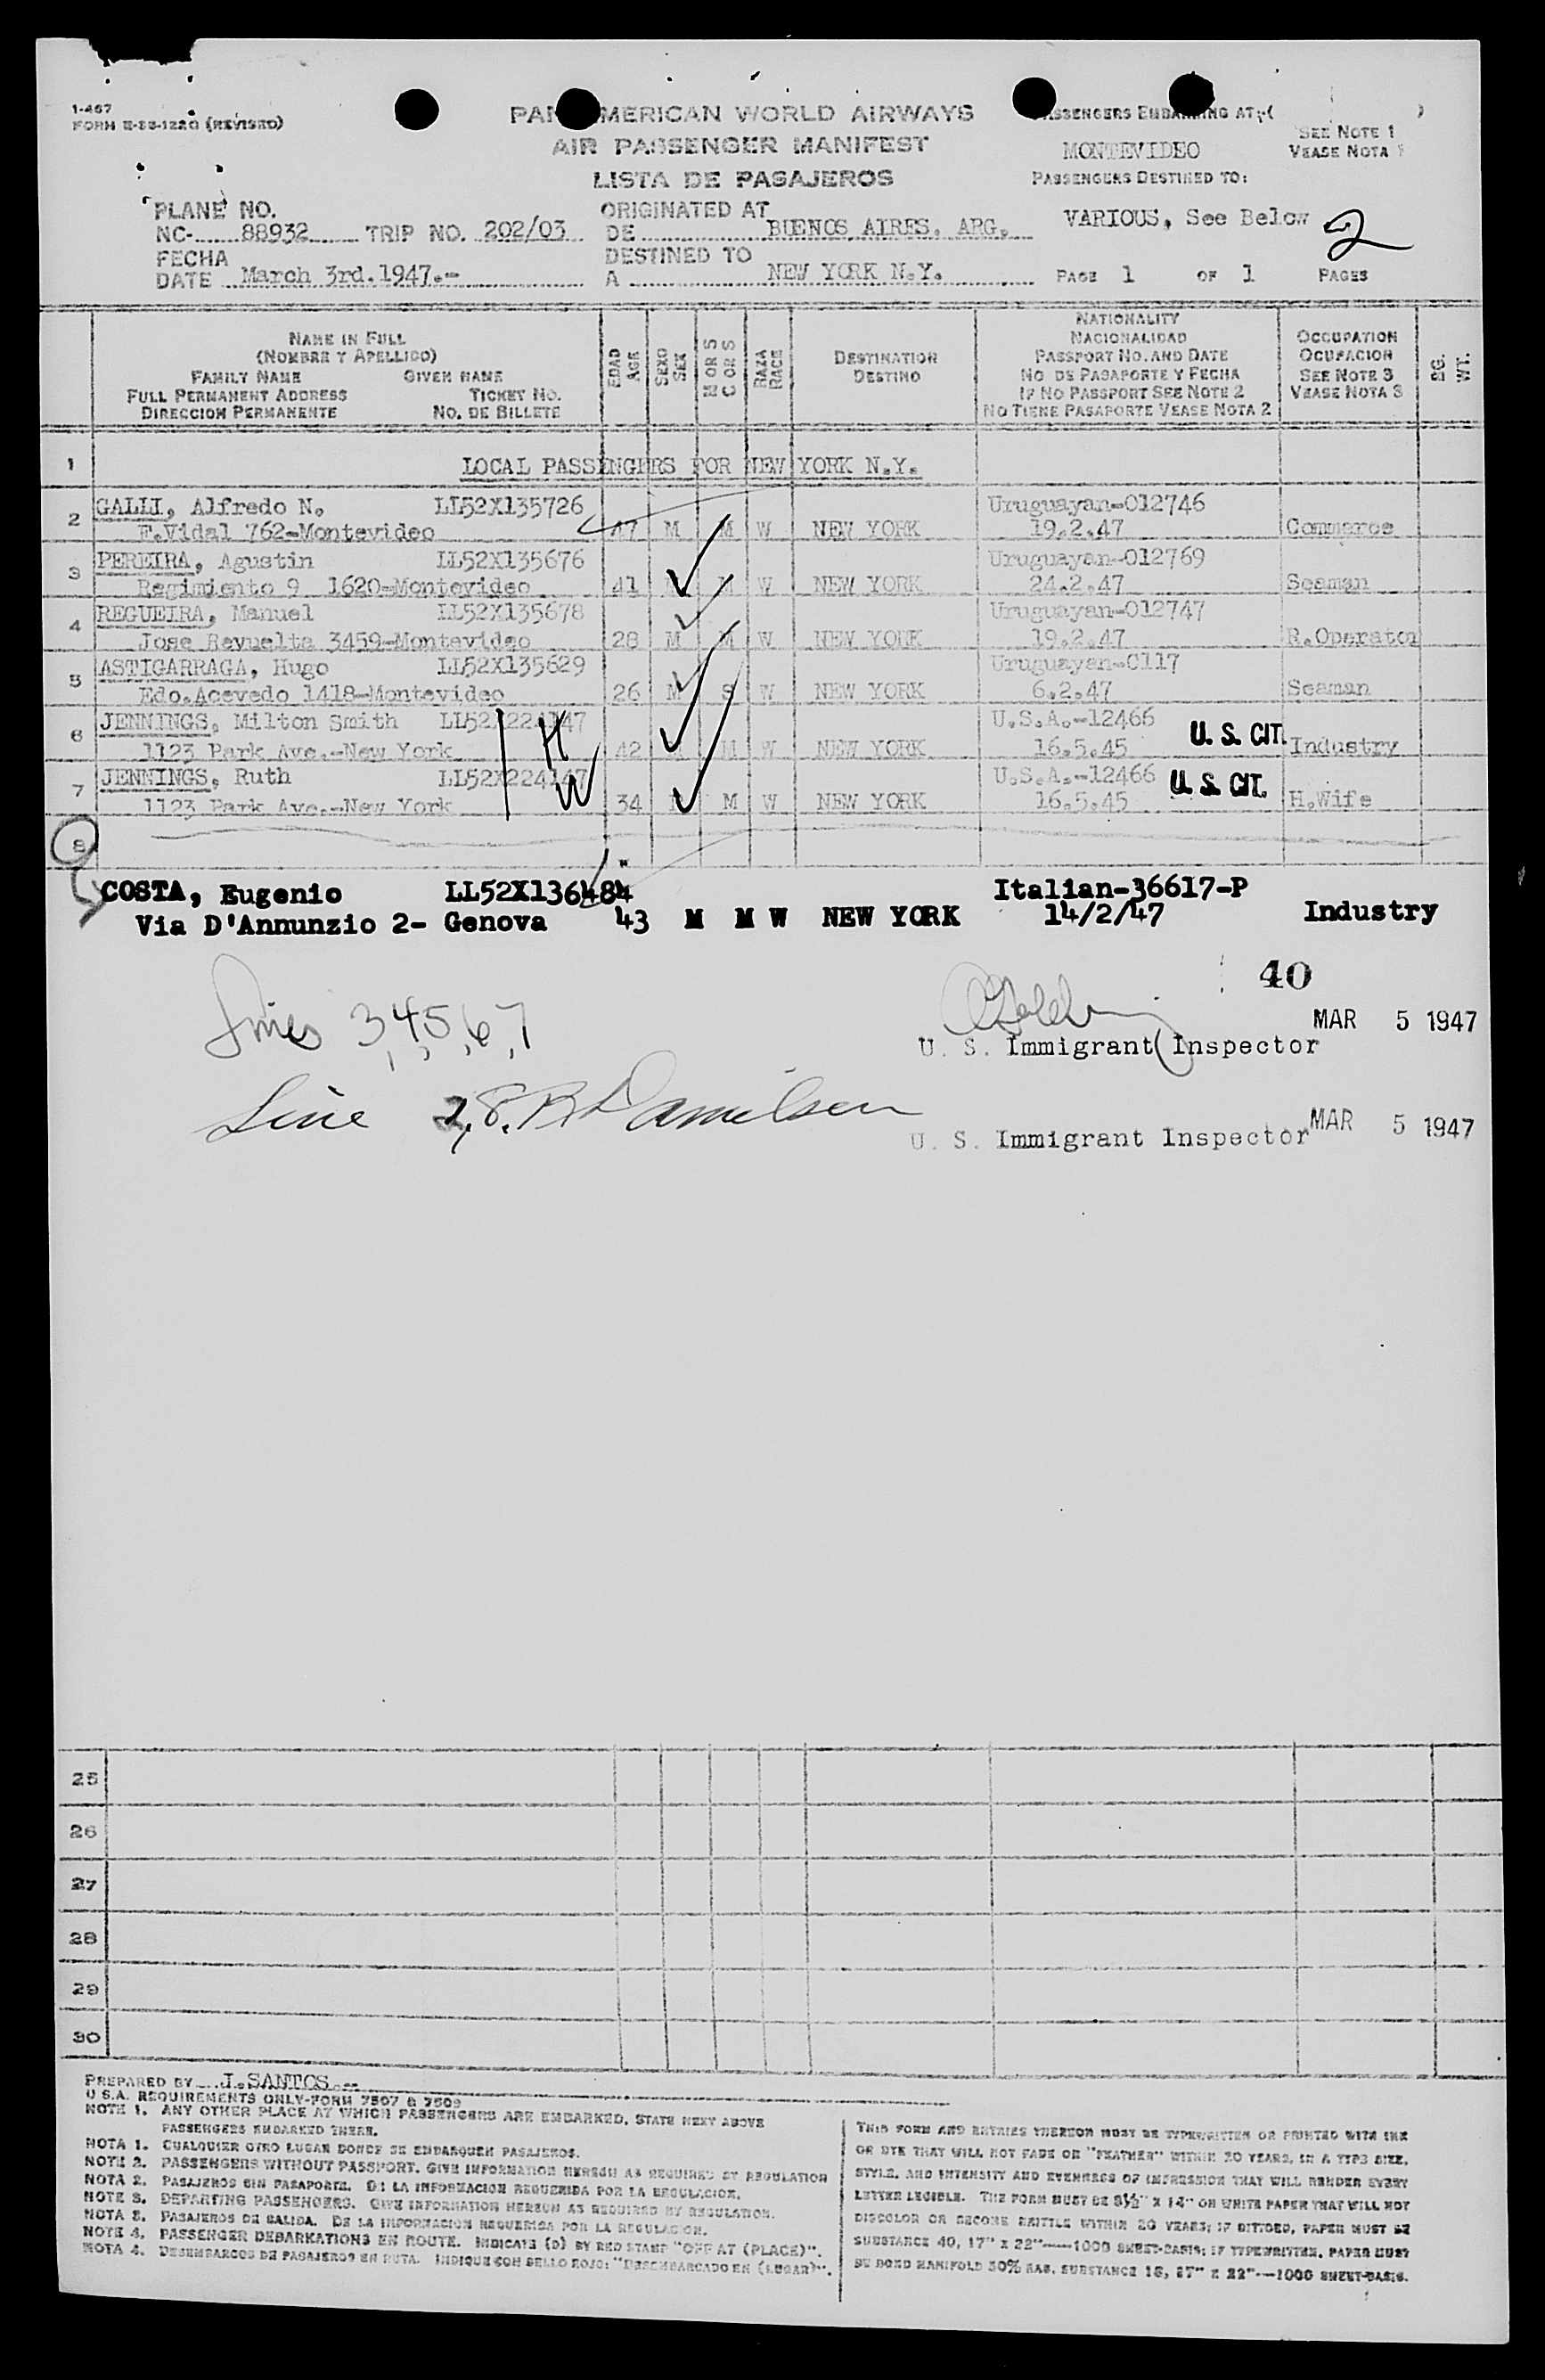 1-467
FORM E-88-1220 (REVISED)
PAN AMERICAN WORLD AIRWAYS
AIR PASSENGER MANIFEST
LISTA DE PASAJEROS
PASSENGERS EMBARKING AT: ( )
SEE NOTE 1
MONTEVIDEO VEASE NOTA 1
PASSENGERS DESTINED TO:
VARIOUS, See Below 2
PLANE NO.
NC- 88932 TRIP NO. 202/03
FECHA
DATE March 3rd.1947.-
ORIGINATED AT
DE BUENOS AIRES, ARG.
DESTINED TO
A NEW YORK N.Y.
PAGE 1 OF 1 PAGES
NAME IN FULL
(NOMBRE Y APELLIDO)
FAMILY NAME GIVEN NAME
FULL PERMANENT ADDRESS TICKET NO.
DIRECCION PERMANENTE NO. DE BILLETE
EDAD
AGE
SEXO
SEX
M OR S
C OR S
RAZA
RACE
DESTINATION
DESTINO
NATIONALITY
NACIONALIDAD
PASSPORT NO. AND DATE
NO DE PASAPORTE Y FECHA
IF NO PASSPORT SEE NOTE 2
NO TIENE PASAPORTE VEASE NOTA 2
OCCUPATION
OCUPACION
SEE NOTE 3
VEASE NOTA 3
BG.
WT.
1 LOCAL PASSENGERS FOR NEW YORK N.Y.
2 GALLI, Alfredo N. LL52X135726 Uruguayan-012746
F.Vidal 762-Montevideo 47 M M W NEW YORK 19.2.47 Commerce
3 PEREIRA, Agustin LL52X135676 Uruguayan-012769
Regimiento 9 1620-Montevideo 41 M M W NEW YORK 24.2.47 Seaman
4 REGUEIRA, Manuel LL52X135678 Uruguayan-012747
Jose Revuelta 3459-Montevideo 28 M M W NEW YORK 19.2.47 R.Operator
5 ASTIGARRAGA, Hugo LL52X135629 Uruguayan-0117
Edo.Acevedo 1418-Montevideo 26 M S W NEW YORK 6.2.47 Seaman
6 JENNINGS, Milton Smith LL52X224147 H U.S.A.-12466 U. S. CIT.
1123 Park Ave.-New York 42 M W NEW YORK 16.5.45 Industry
7 JENNINGS, Ruth LL52X224147 W U.S.A.-12466 U. S. CIT.
1123 Park Ave.-New York 34 M W NEW YORK 16.5.45 H.Wife
8
COSTA, Eugenio LL52X136484 Italian-36617-P
Via D'Annunzio 2- Genova 43 M M W NEW YORK 14/2/47 Industry
40
Lines 3,4,5,6,7
MAR 5 1947
U. S. Immigrant Inspector
Line 2,8. Danielsen
U. S. Immigrant Inspector MAR 5 1947
25
26
27
28
29
30
PREPARED BY J.SANTOS.--
U S.A. REQUIREMENTS ONLY-FORM 7507 & 7509
NOTE 1. ANY OTHER PLACE AT WHICH PASSENGERS ARE EMBARKED, STATE NEXT ABOVE
PASSENGERS EMBARKED THERE.
NOTA 1. CUALQUIER OTRO LUGAR DONDE SE EMBARQUEN PASAJEROS.
NOTE 2. PASSENGERS WITHOUT PASSPORT. GIVE INFORMATION HEREON AS REQUIRED BY REGULATION
NOTA 2. PASAJEROS SIN PASAPORTE. DE LA INFORMACION REQUERIDA POR LA REGULACION.
NOTE 3. DEPARTING PASSENGERS. GIVE INFORMATION HEREON AS REQUIRED BY REGULATION.
NOTA 3. PASAJEROS DE SALIDA. DE LA INFORMACION REQUERIDA POR LA REGULACION.
NOTE 4. PASSENGER DEBARKATIONS EN ROUTE. INDICATE (D) BY RED STAMP "OFF AT (PLACE)".
NOTA 4. DESEMBARCOS DE PASAJEROS EN RUTA. INDIQUE CON SELLO ROJO: "DESEMBARCADO EN (LUGAR)".
THIS FORM AND ENTRIES THEREON MUST BE TYPEWRITTEN OR PRINTED WITH INK
OR DYE THAT WILL NOT FADE OR "FEATHER" WITHIN 20 YEARS, IN A TYPE SIZE,
STYLE, AND INTENSITY AND EVENNESS OF IMPRESSION THAT WILL RENDER EVERY
LETTER LEGIBLE. THE FORM MUST BE 8½" X 14" ON WHITE PAPER THAT WILL NOT
DISCOLOR OR BECOME BRITTLE WITHIN 20 YEARS; IF DITTOED, PAPER MUST BE
SUBSTANCE 40, 17" X 22"----1000 SHEET-BASIS; IF TYPEWRITTEN, PAPER MUST
BE BOND MANIFOLD 50% RAG, SUBSTANCE 16, 17" X 22"---1000 SHEET-BASIS.